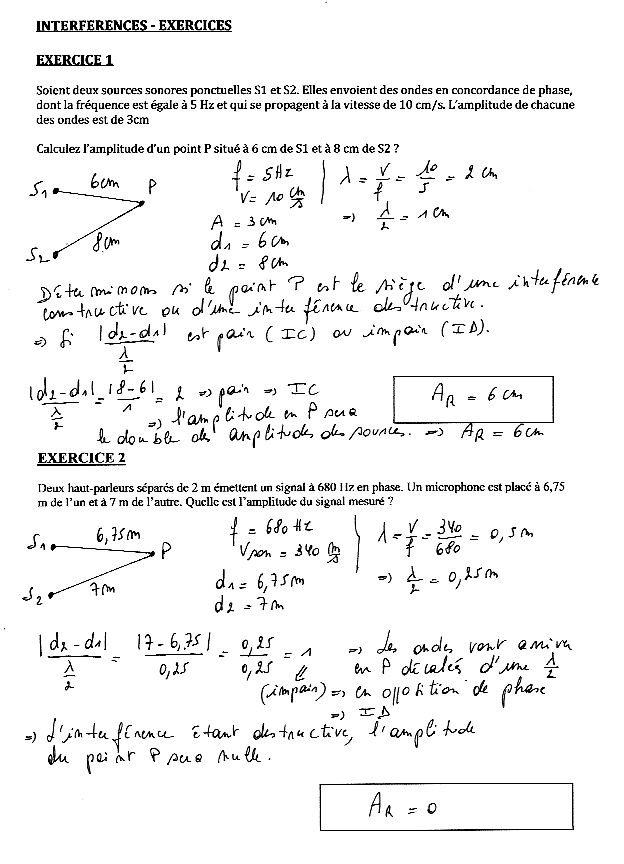 INTERFERENCES - EXERCICES
EXERCICE 1
Soient deux sources sonores ponctuelles S1 et S2. Elles envoient des ondes en concordance de phase,
dont la fréquence est égale à 5 Hz et qui se propagent à la vitesse de 10 cm/s. L'amplitude de chacune
des ondes est de 3cm
Calculez l'amplitude d'un point P situé à 6 cm de S1 et à 8 cm de S2 ?
S1 6cm P
S2 8cm
f = 5Hz
V = 10 cm/s
A = 3 cm
d1 = 6cm
d2 = 8cm
λ = V/f = 10/5 = 2 cm
=> λ/2 = 1 cm
Déterminons si le point P est le siège d'une interférence
constructive ou d'une interférence destructive.
=> Si |d2-d1| / (λ/2) est pair (IC) ou impair (ID).
|d2-d1| / (λ/2) = |8-6| / 1 = 2 => pair => IC
=> l'amplitude en P sera
le double des amplitudes des sources. => AR = 6cm
AR = 6 cm
EXERCICE 2
Deux haut-parleurs séparés de 2 m émettent un signal à 680 Hz en phase. Un microphone est placé à 6,75
m de l'un et à 7 m de l'autre. Quelle est l'amplitude du signal mesuré ?
S1 6,75m P
S2 7m
f = 680 Hz
Vson = 340 m/s
d1 = 6,75m
d2 = 7m
λ = V/f = 340/680 = 0,5m
=> λ/2 = 0,25m
|d2-d1| / (λ/2) = |7-6,75| / 0,25 = 0,25/0,25 = 1 => Les ondes vont arriver
en P décalés d'une λ/2
(impair) => en opposition de phase
=> ID
=> L'interférence étant destructive, l'amplitude
du point P sera nulle.
AR = 0